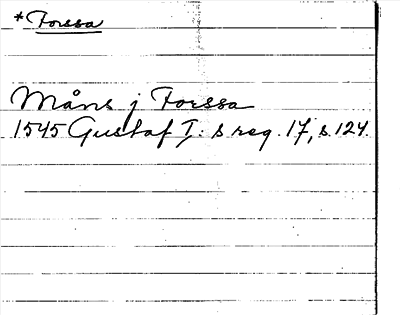 *Forssa
Måns j Forssa
1545 Gustaf I: s reg. 17, s. 124.